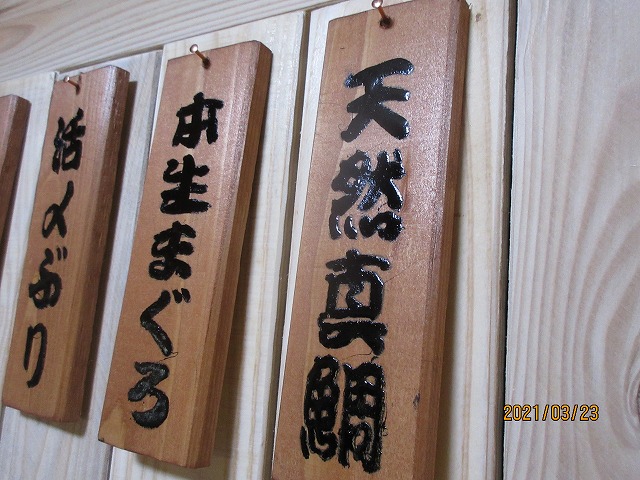 天然真鯛
本生まぐろ
活〆ぶり
2021/03/23